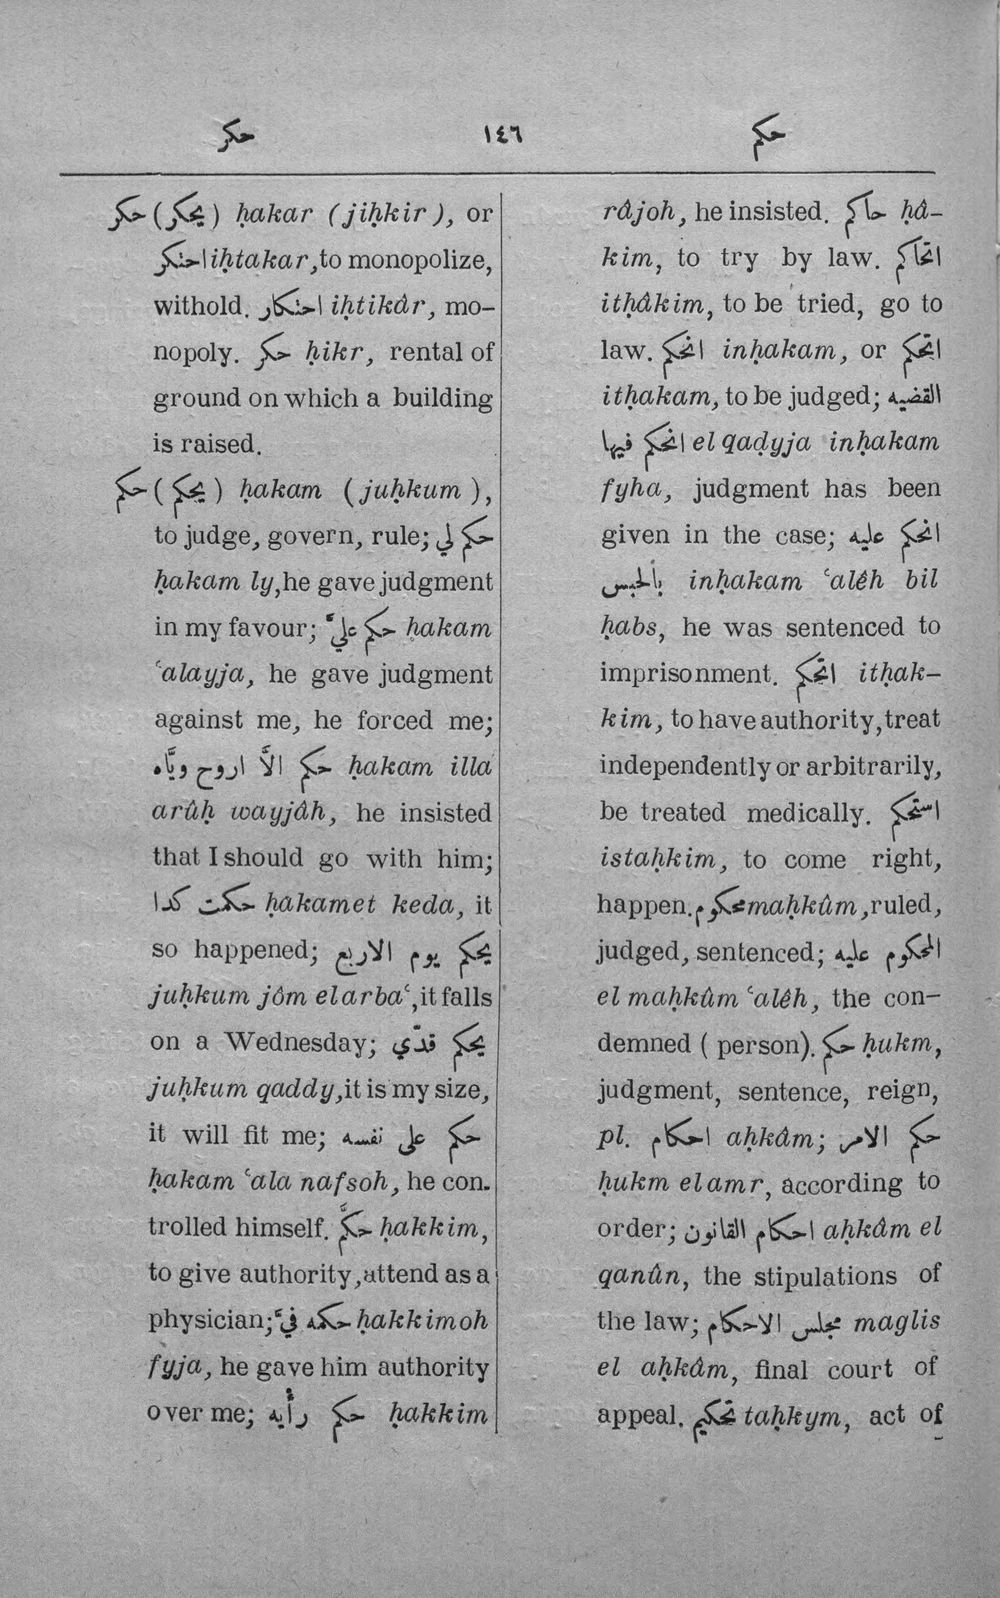 حكر ١٤٦ حكم
حكر (يحكر) ḥakar (jiḥkir), or
احتكر iḥtakar, to monopolize,
withold. احتكار iḥtikâr, mo-
nopoly. حكر ḥikr, rental of
ground on which a building
is raised.
حكم (يحكم) ḥakam (juḥkum),
to judge, govern, rule; حكم لي
ḥakam ly, he gave judgment
in my favour; حكم عليَّ ḥakam
ʿalayja, he gave judgment
against me, he forced me;
حكم الاَّ اروح ويَّاه ḥakam illa
arûḥ wayjâh, he insisted
that I should go with him;
حكمت كدا ḥakamet keda, it
so happened; يحكم يوم الاربع
juḥkum jôm elarbaʿ, it falls
on a Wednesday; يحكم قدّي
juḥkum qaddy, it is my size,
it will fit me; حكم على نفسه
ḥakam ʿala nafsoh, he con-
trolled himself. حكَّم ḥakkim,
to give authority, attend as a
physician; حكمه فيَّ ḥakkimoh
fyja, he gave him authority
over me; حكم رأيه ḥakkim
râjoh, he insisted. حاكم ḥâ-
kim, to try by law. اتحاكم
itḥâkim, to be tried, go to
law. انحكم inḥakam, or اتحكم
itḥakam, to be judged; القضيه
انحكم فيها el qaḍyja inḥakam
fyha, judgment has been
given in the case; انحكم عليه
بالحبس inḥakam ʿalêh bil
ḥabs, he was sentenced to
imprisonment. اتحكم itḥak-
kim, to have authority, treat
independently or arbitrarily,
be treated medically. استحكم
istaḥkim, to come right,
happen. محكوم maḥkûm, ruled,
judged, sentenced; المحكوم عليه
el maḥkûm ʿalêh, the con-
demned (person). حكم ḥukm,
judgment, sentence, reign,
pl. احكام aḥkâm; حكم الامر
ḥukm elamr, according to
order; احكام القانون aḥkâm el
qanûn, the stipulations of
the law; مجلس الاحكام maglis
el aḥkâm, final court of
appeal. تحكيم taḥkym, act of